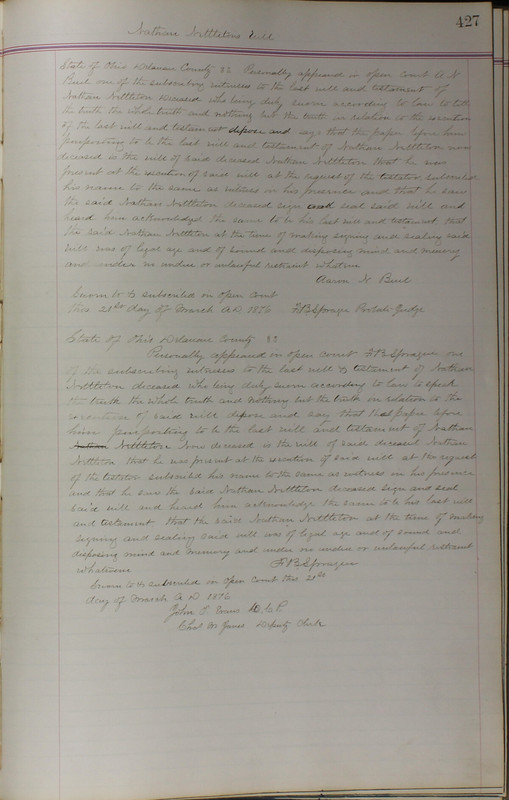 427
Nathan Nettletons Will
State of Ohio Delaware County SS Personally appeared in open Court A H
Buel one of the subscribing witnesses to the last will and testament of
Nathan Nettleton Deceased who being duly sworn according to law to tell
the truth the whole truth and nothing but the truth in relation to the execution
of the last will and testament depose and says that the paper before him
purporting to be the last will and testament of Nathan Nettleton now
deceased is the will of said deceased Nathan Nettleton that he was
present at the execution of said will at the request of the testator subscribed
his name to the same as witness in his presence and that he saw
the said Nathan Nettleton deceased sign and seal said will and
heard him acknowledged the same to be his last will and testament that
the said Nathan Nettleton at the time of making signing and sealing said
will was of legal age and of sound and disposing mind and memory
and under no undue or unlawful restraint whatever
Aaron H Buel
Sworn to & subscribed in open Court
this 21st day of March A.D. 1876 F B Sprague Probate Judge
State of Ohio Delaware County SS
Personally appeared in open Court F B Sprague one
of the subscribing witnesses to the last will & testament of Nathan
Nettleton deceased who being duly sworn according to law to speak
the truth the whole truth and nothing but the truth in relation to the
execution of said will depose and say that the paper before
him purporting to be the last will and testament of Nathan
Nathan Nettleton Now deceased is the will of said deceased Nathan
Nettleton that he was present at the execution of said will at the request
of the testator subscribed his name to the same as witness in his presence
and that he saw the said Nathan Nettleton deceased sign and seal
said will and heard him acknowledge the same to be his last will
and testament that the said Nathan Nettleton at the time of making
signing and sealing said will was of legal age and of sound and
disposing mind and memory and under no undue or unlawful restraint
whatsoever F B Sprague
Sworn to & subscribed in open Court this 21st
day of March A D 1876
John T. Evans D.C.P.
Deputy Clerk